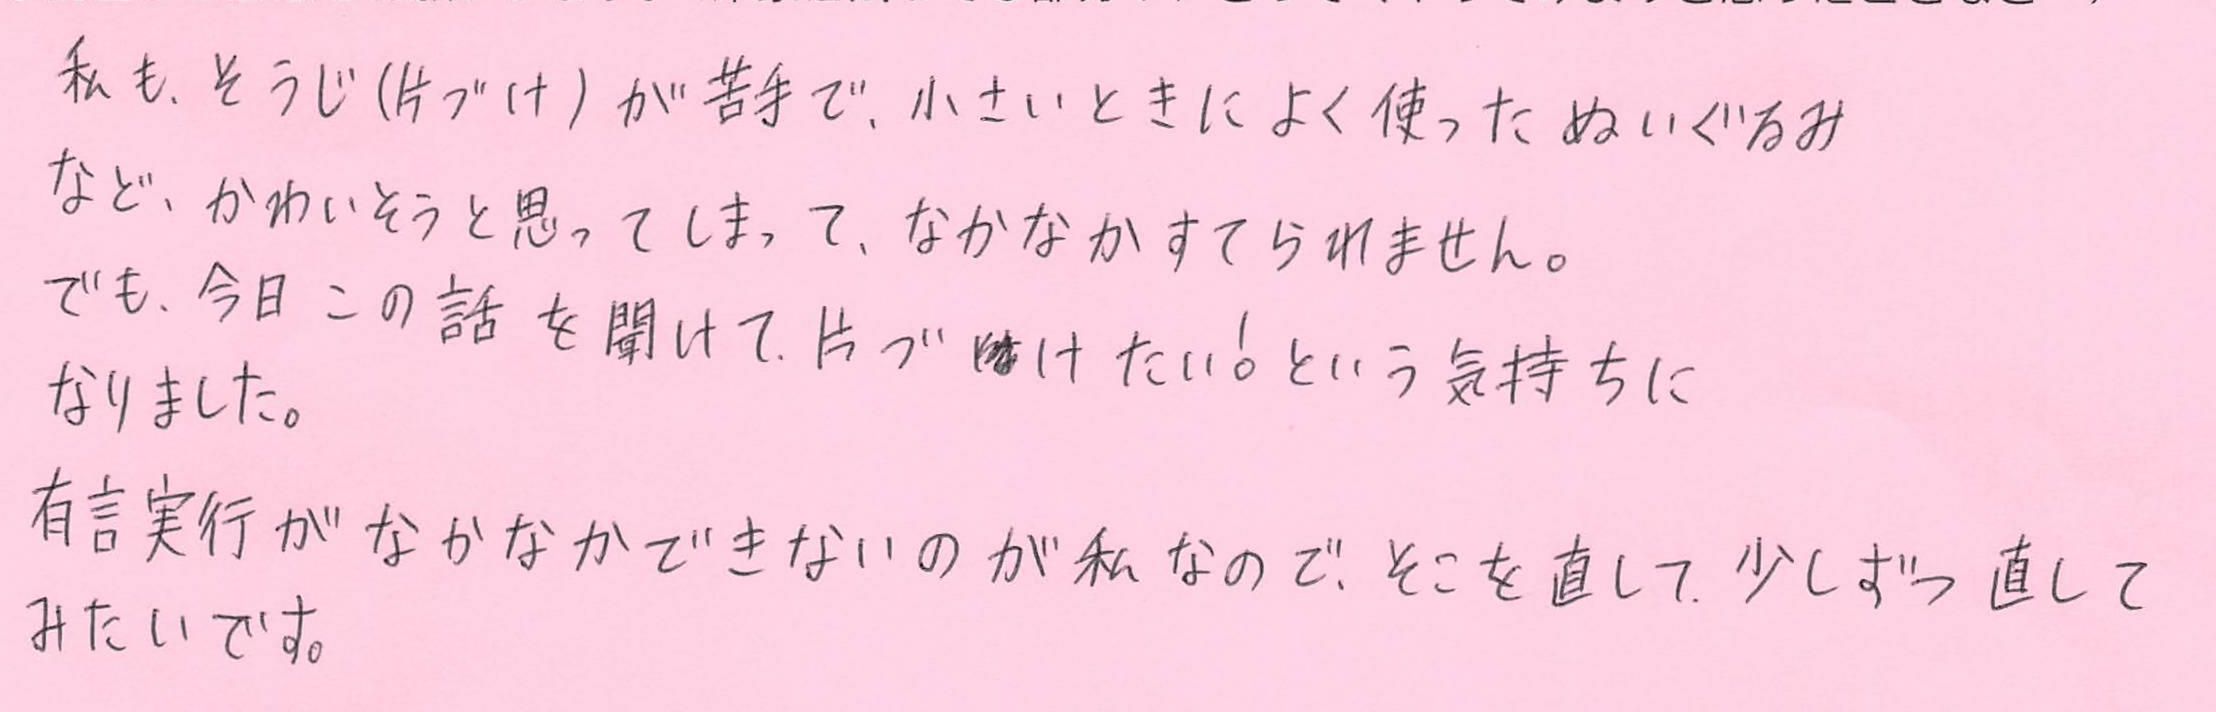 私も、そうじ(片づけ)が苦手で、小さいときによく使ったぬいぐるみ
など、かわいそうと思ってしまって、なかなかすてられません。
でも、今日この話を聞けて、片づけたい!という気持ちに
なりました。
有言実行がなかなかできないのが私なので、そこを直して、少しずつ直して
みたいです。